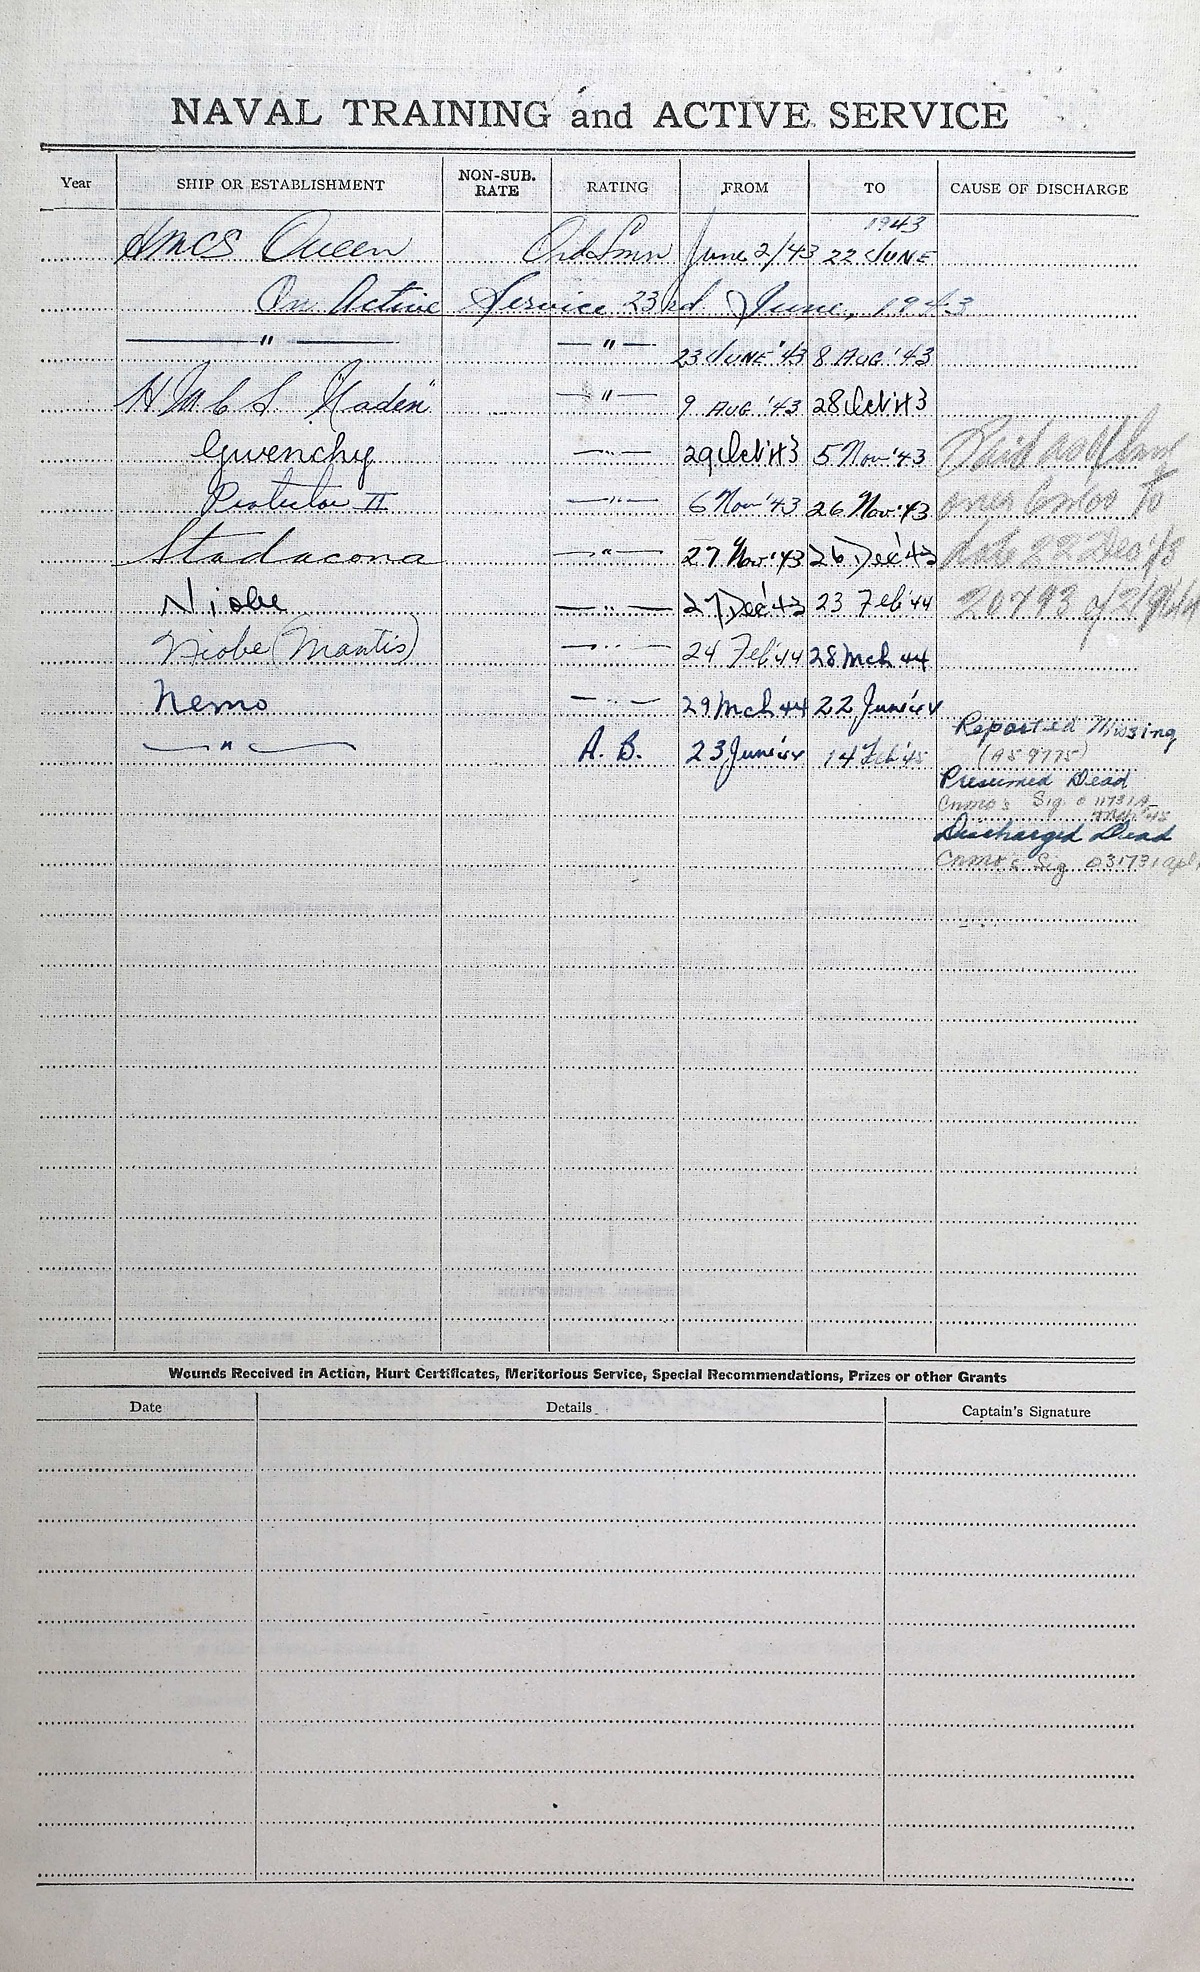 NAVAL TRAINING and ACTIVE SERVICE
Year SHIP OR ESTABLISHMENT NON-SUB. RATE RATING FROM TO CAUSE OF DISCHARGE
1943
HMCS Queen Ord Smn June 2/43 22 JUNE
On Active Service 23rd June, 1943
— " — — " — 23 JUNE '43 8 AUG '43
H.M.C.S. "Naden" — " — 9 AUG '43 28 Oct '43
Givenchy — " — 29 Oct '43 5 Nov '43 Paid as
Protector II — " — 6 Nov '43 26 Nov '43 over to
Stadacona — " — 27 Nov '43 26 Dec '43 date 22 Dec '43
Niobe — " — 27 Dec '43 23 Feb '44 20793 of
Niobe (Mantis) — " — 24 Feb '44 28 Mch 44
Nemo — " — 29 Mch 44 22 June 44
— " — A. B. 23 June 44 14 Feb '45 Reported Missing
(AS 9775)
Presumed Dead
Cnmo's Sig. 011731A
Mch '45
Discharged Dead
Cnmo's Sig 031731 apl
Wounds Received in Action, Hurt Certificates, Meritorious Service, Special Recommendations, Prizes or other Grants
Date Details Captain's Signature